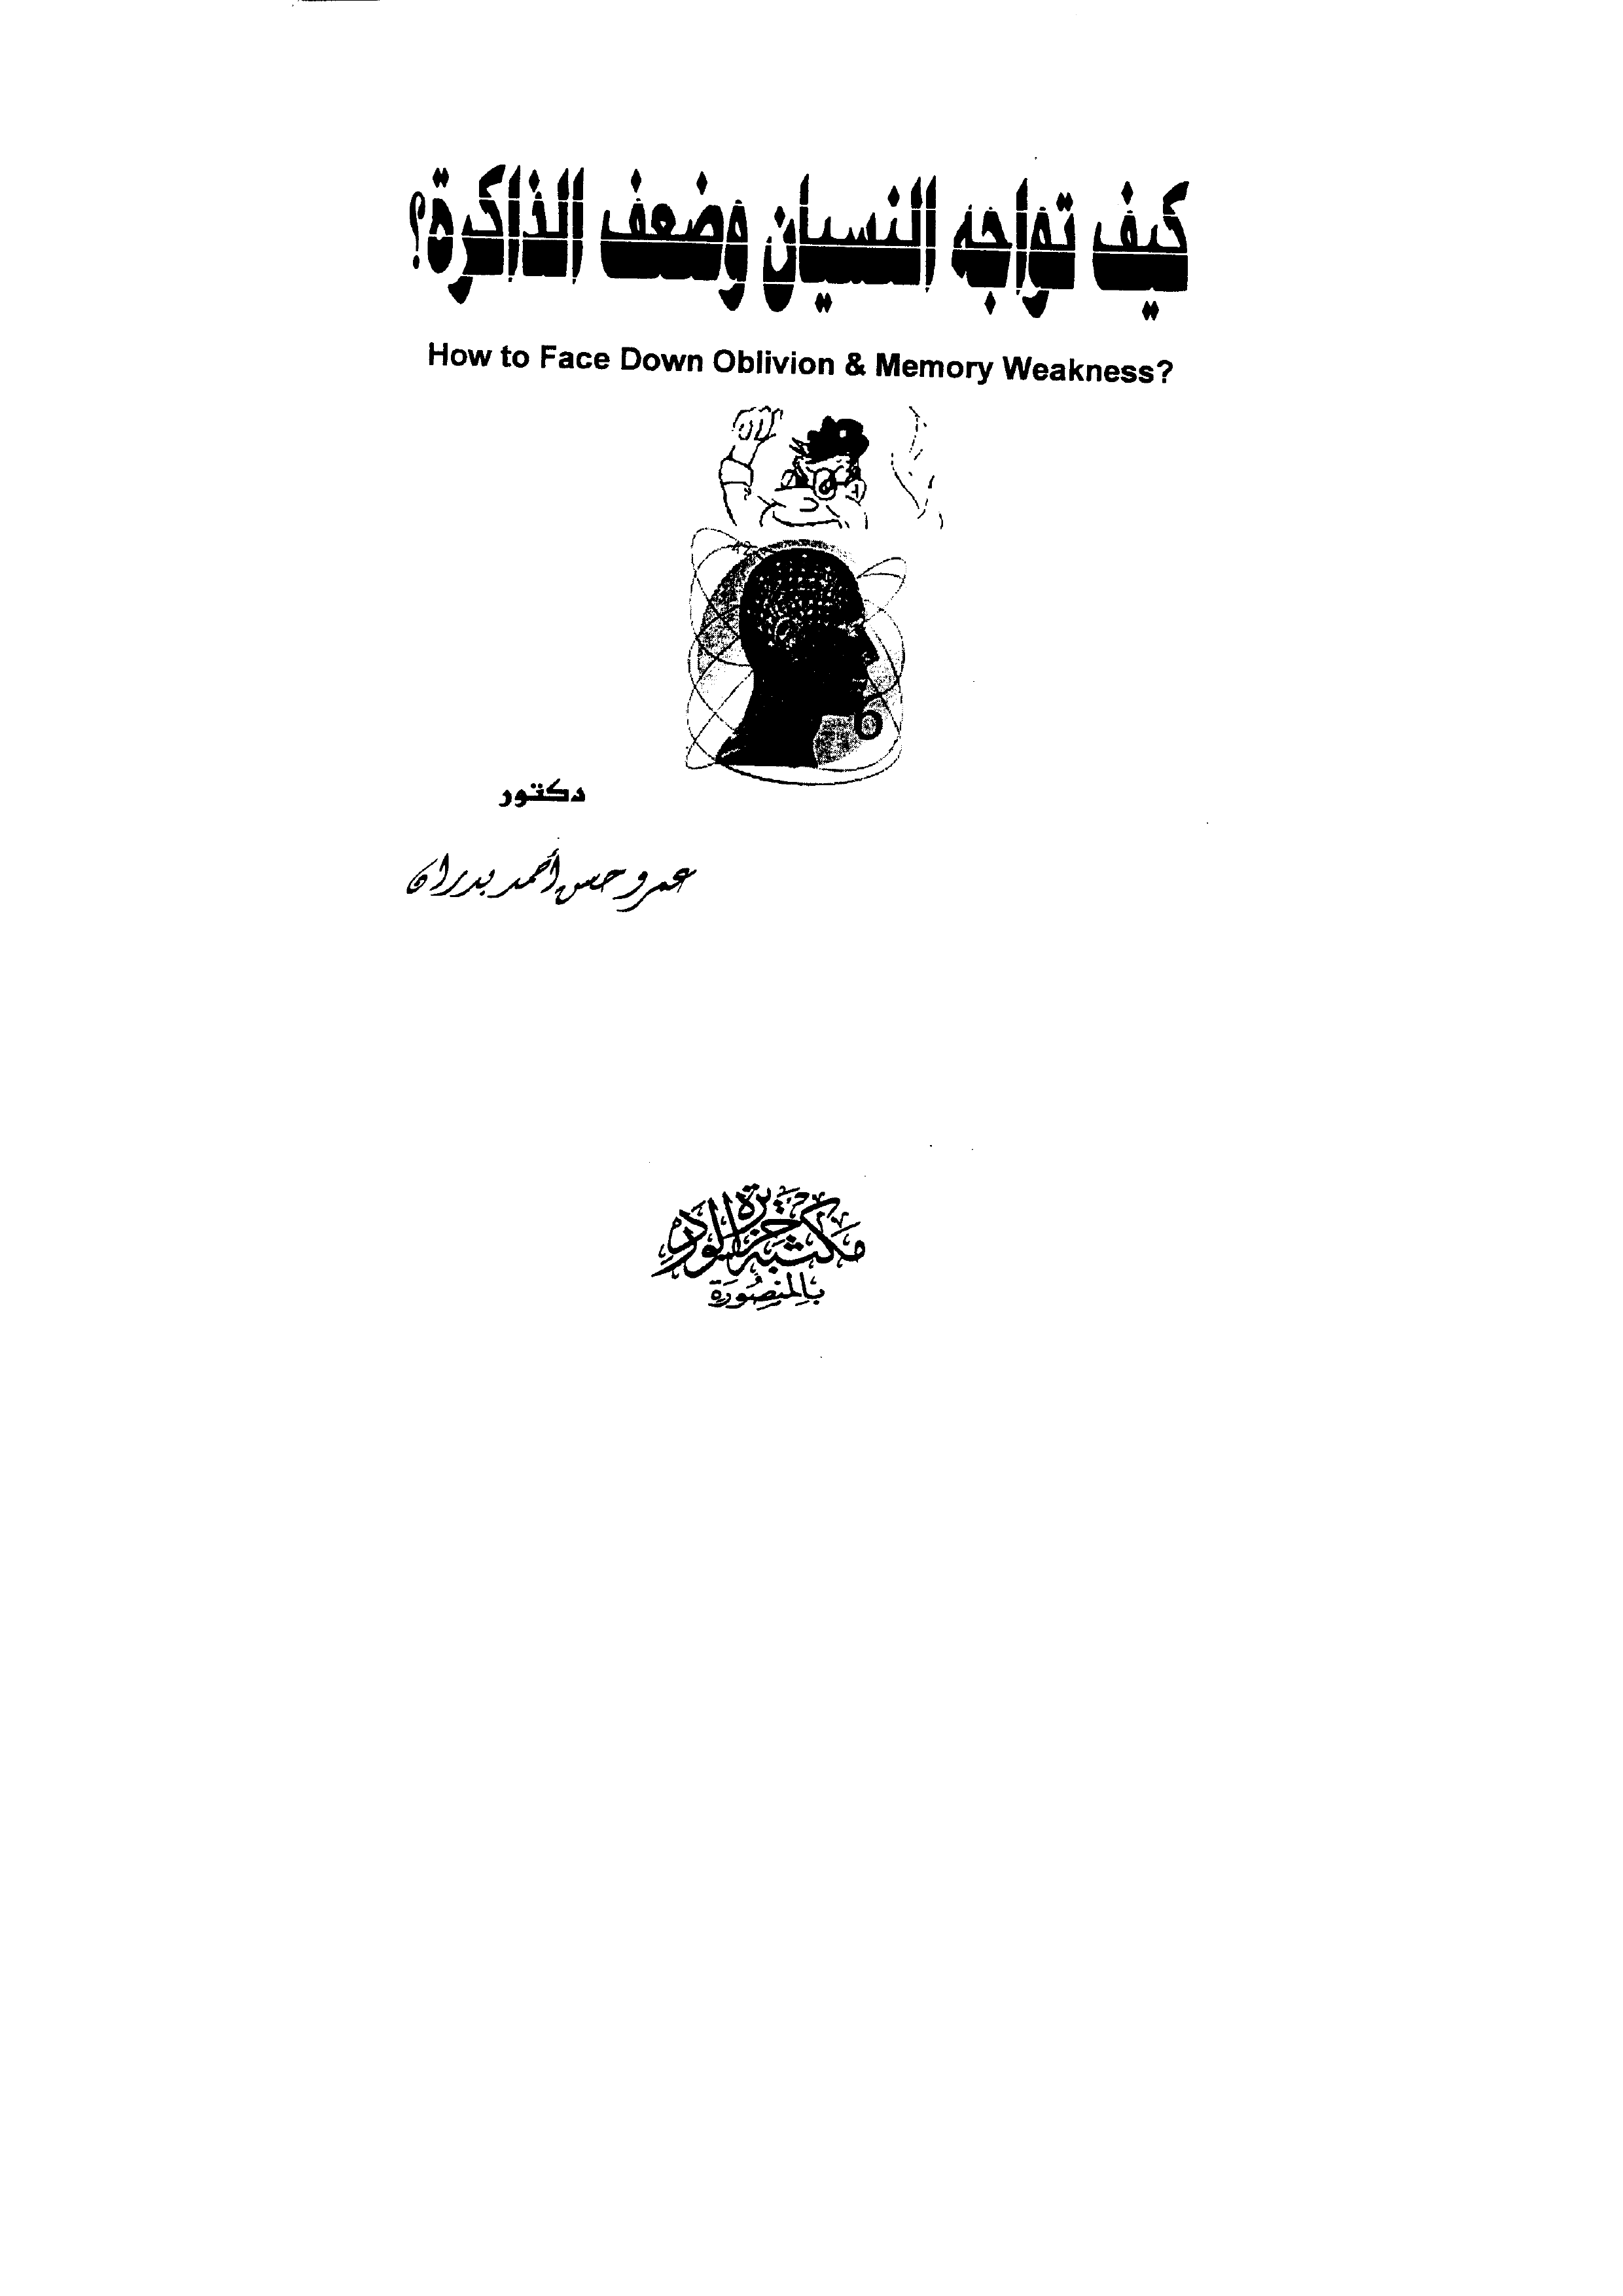 كيف تواجه النسيان وضعف الذاكرة؟
How to Face Down Oblivion & Memory Weakness?
دكتور
عمرو حسن أحمد بدران
مكتبة جزيرة الورد
بالمنصورة